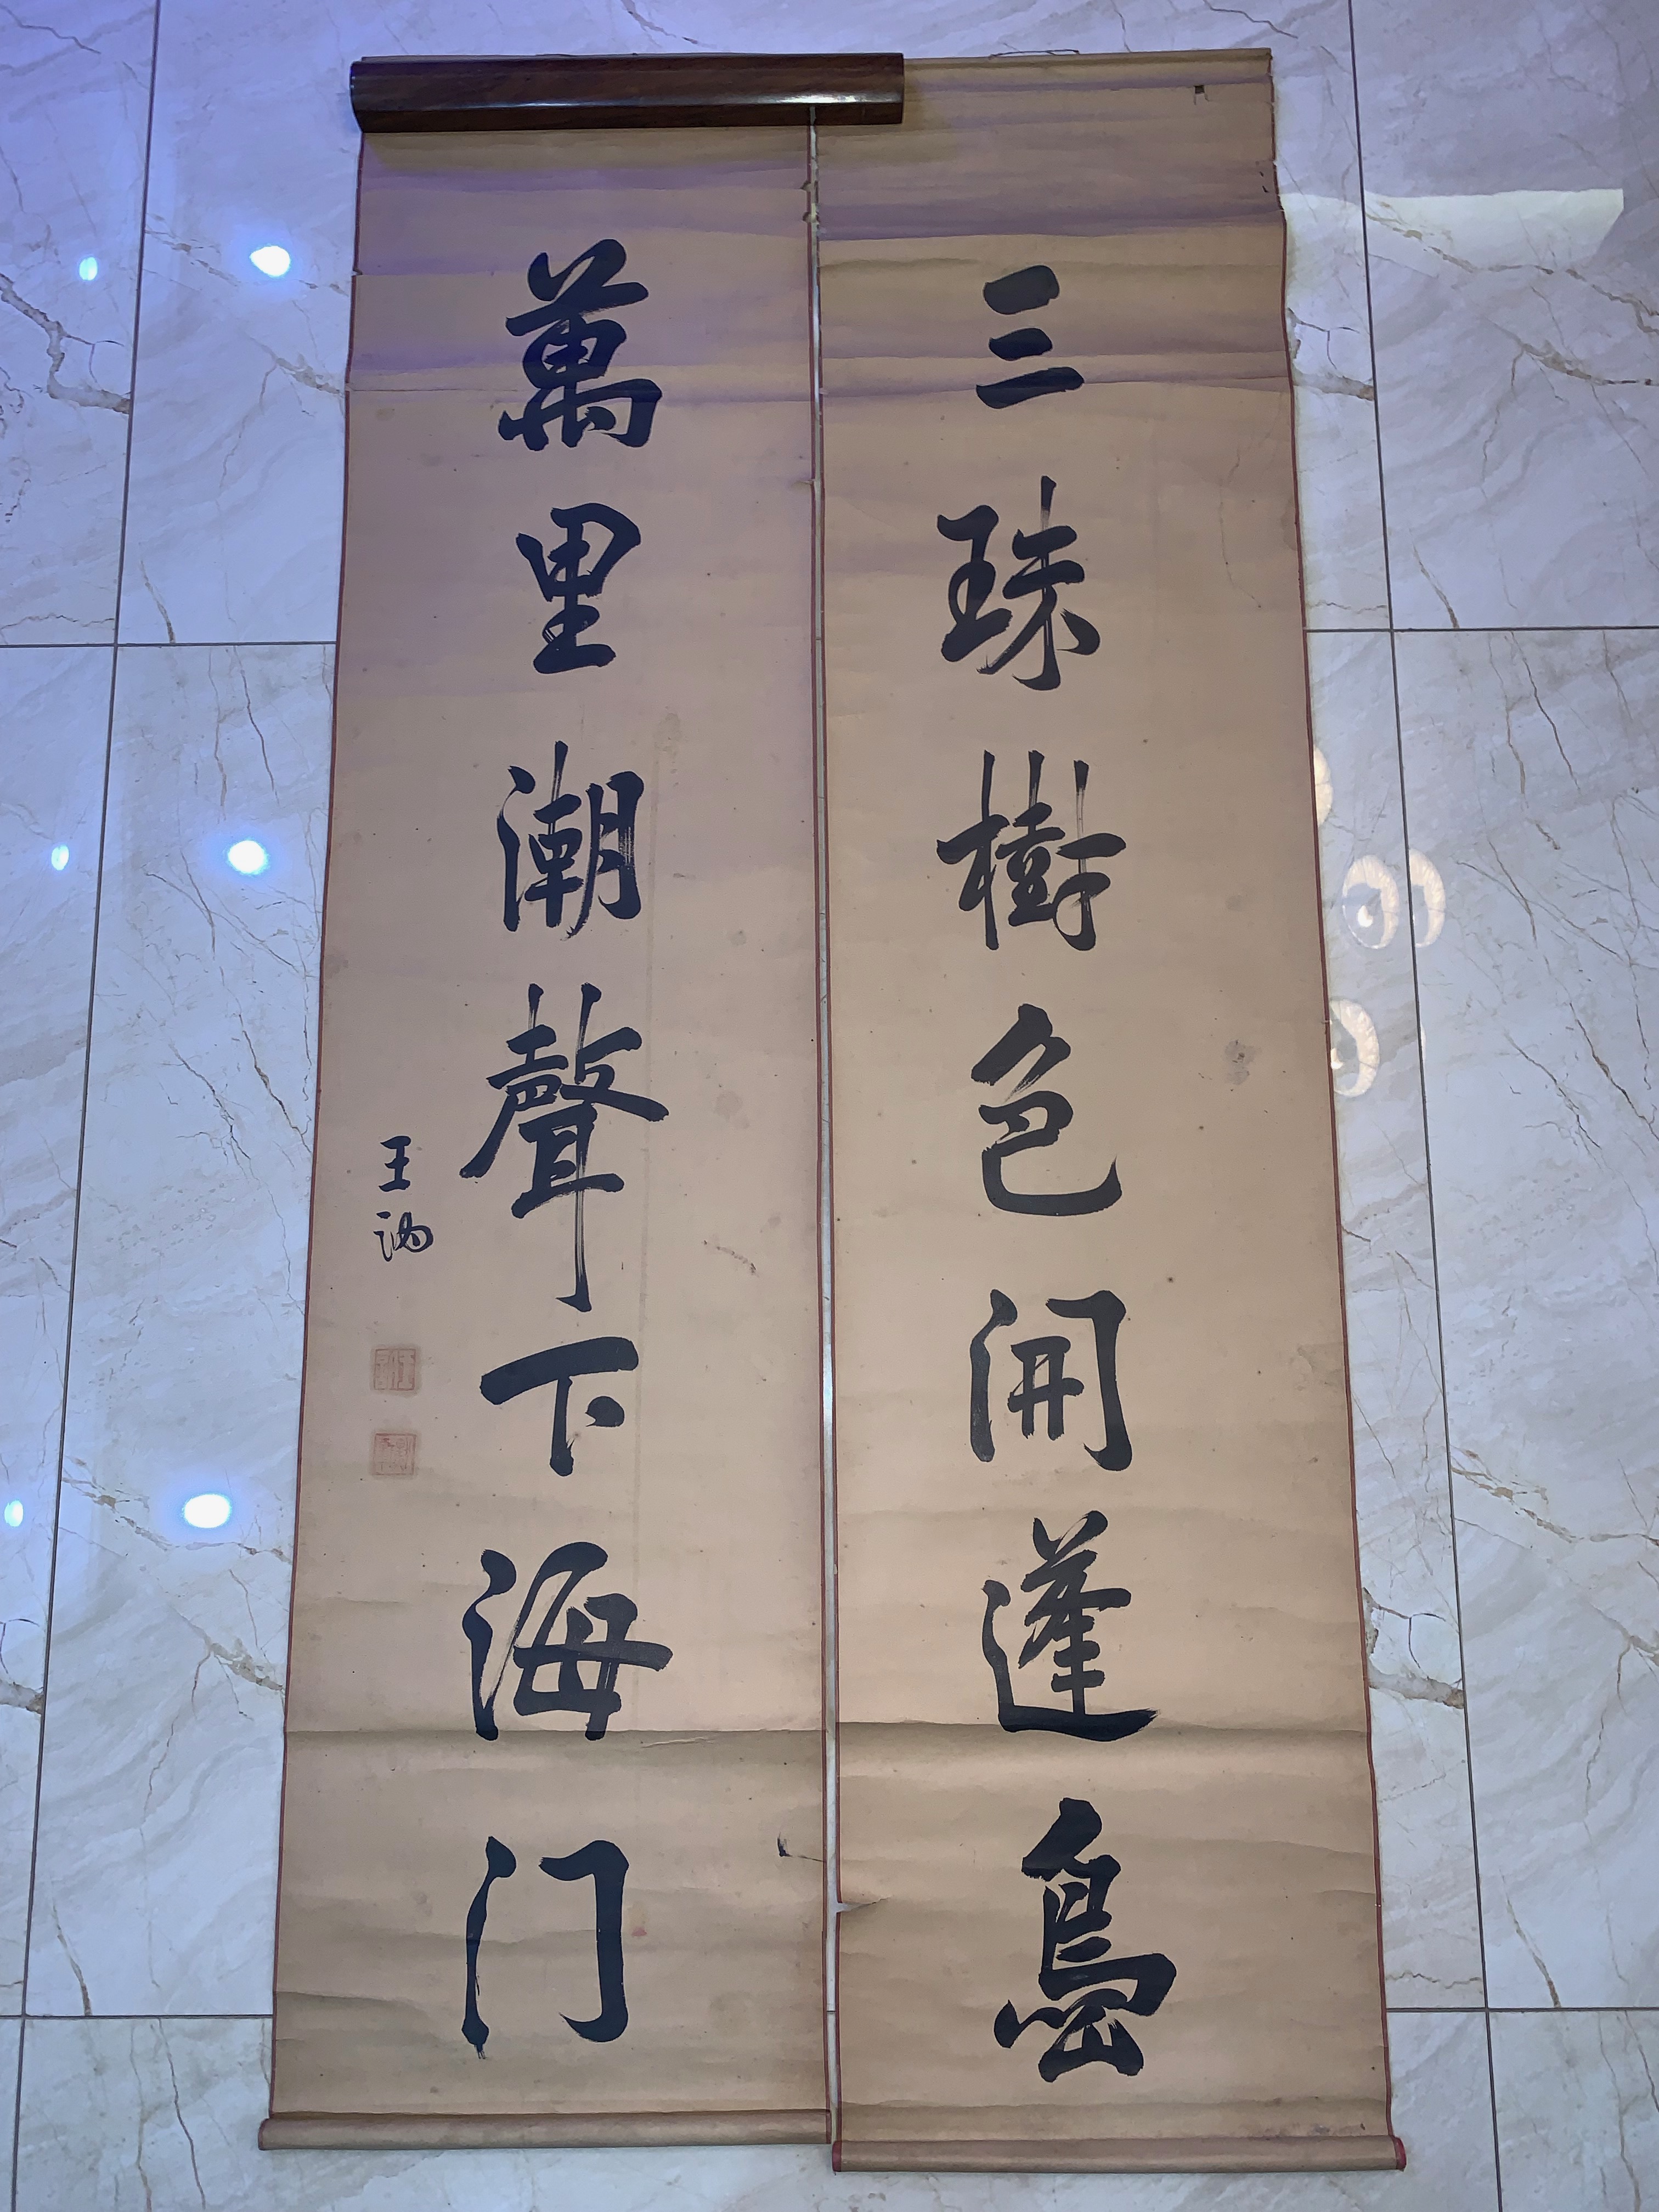 三珠樹色開蓬島
萬里潮聲下海门
王